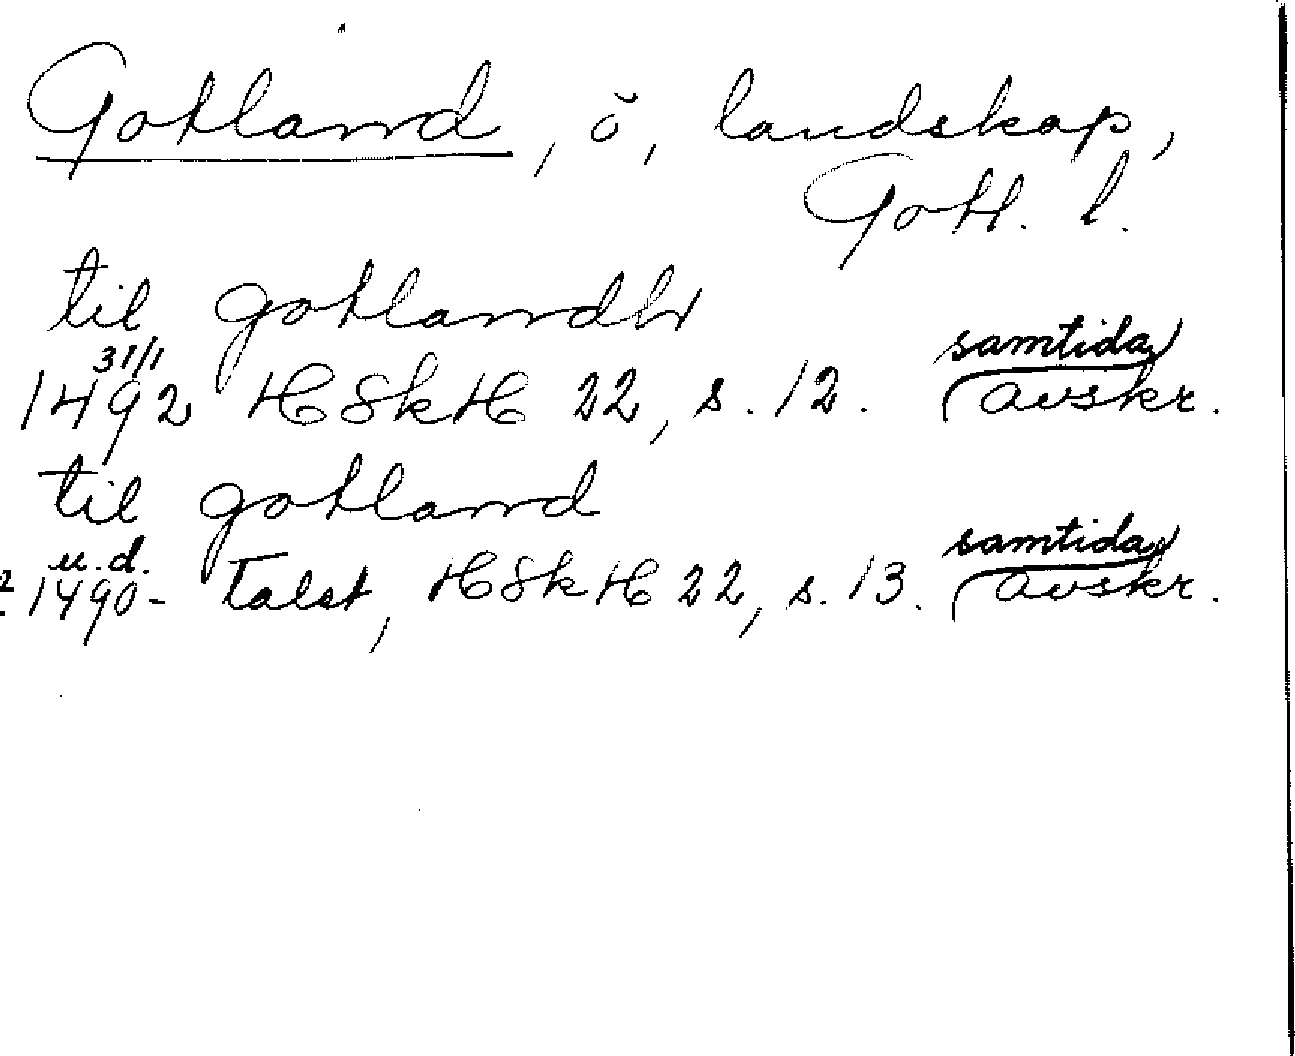 Gotland, ö, landskap,
Gotl. l.
til gotlandh
31/1
1492 HSkH 22, s. 12. (samtida avskr.
til gotland
u.d.
1490- talet, HSkH 22, s. 13. (samtida avskr.